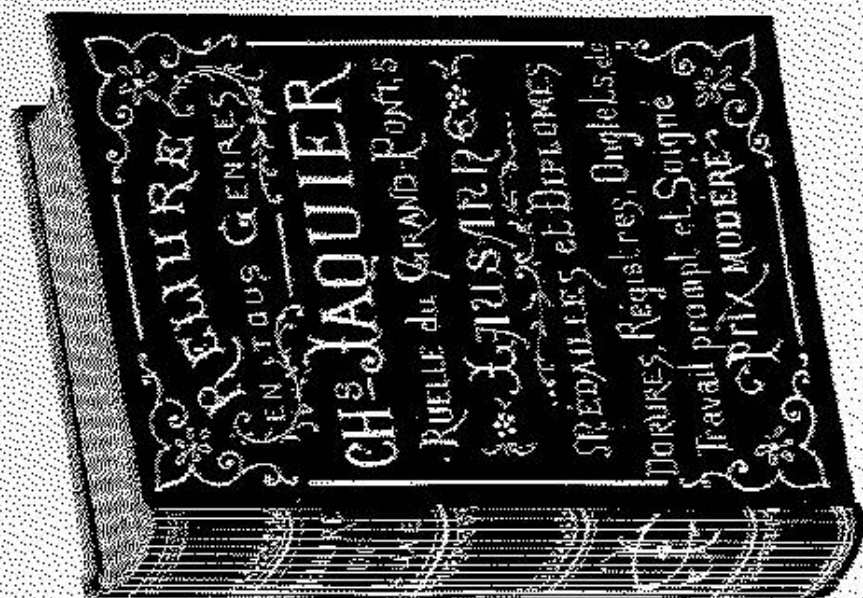 RELIURE
EN TOUS GENRES
CHS. JAQUIER
RUELLE du GRAND-PONT, 8
LAUSANNE
MÉDAILLES et DIPLOMES
DORURES, Registres, Onglets, etc
Travail prompt et Soigné
PRIX MODÉRÉ